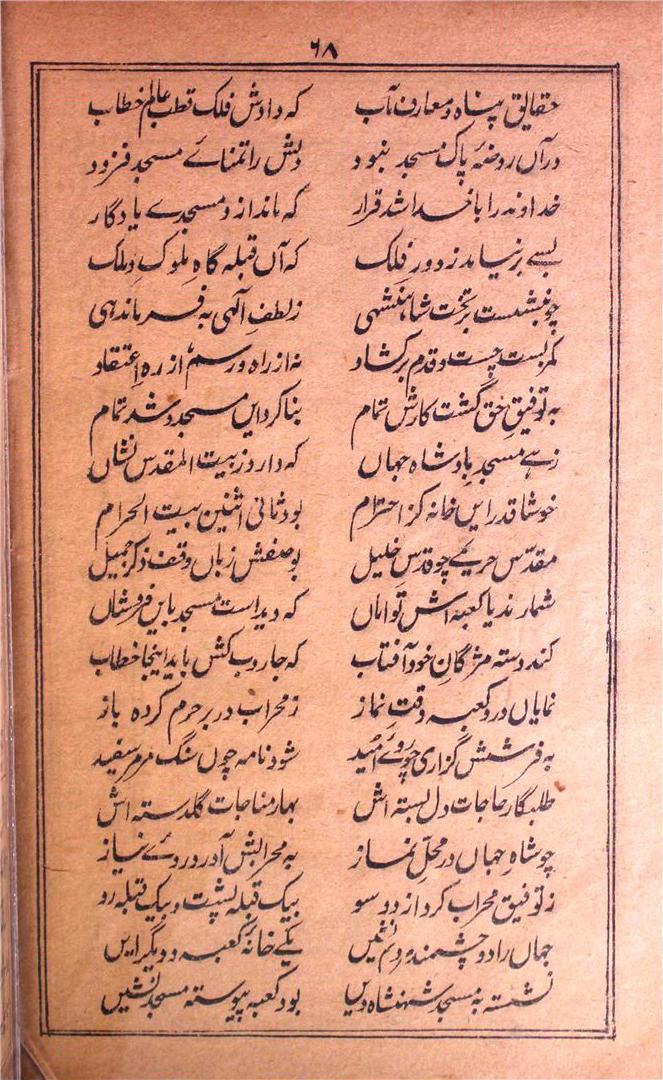 ۶۸
حقایق پناہ و معارف آب کہ دادش فلک قطب عالم خطاب
در آں روضۂ پاک مسجد نبود دلش را تمنائے مسجد فزود
خداوند را با خدا شد قرار کہ ماند ازو مسجدے یادگار
بسے بر نیامد ز دور فلک کہ آں قبلہ گاہِ ملوک و ملک
چو بنشست بر تخت شاہنشہی ز لطف الٰہی بہ فرماندہی
کمر بست چست و قدم بر کشاد نہ از راہ و رسم از رہِ اعتقاد
بہ توفیقِ حق گشت کارش تمام بنا کرد ایں مسجد و شد تمام
زہے مسجد بادشاہ جہاں کہ دارد ز بیت المقدس نشاں
خوشا قدر ایں خانہ کز احترام بود ثانی اثنین بیت الحرام
مقدّس حریمے چو قدس خلیل بوصفش زباں وقف ذکر جمیل
شمارند با کعبہ اش تواماں کہ دید است مسجد بایں فر و شاں
کند دستہ مژگان خود آفتاب کہ جاروب کش باید اینجا خطاب
نمایاں درو کعبہ وقت نماز ز محراب در بر حرم کردہ باز
بہ فرشش گزاری چو روئے امید شود نامہ چوں سنگ مرمر سفید
طلبگار حاجات دل بستہ اش بہار مناجات گلدستہ اش
چو شاہ جہاں در محلّ نماز بہ محرابش آورد روئے نیاز
ز توفیق محراب کرد از دو سو بیک قبلہ پشت و بیک قبلہ رو
جہاں را دو چشمند مردم نشیں یکے خانۂ کعبہ و دیگر ایں
نشستہ بہ مسجد شہنشاہ دیں بود کعبہ پیوستہ مسجد نشیں